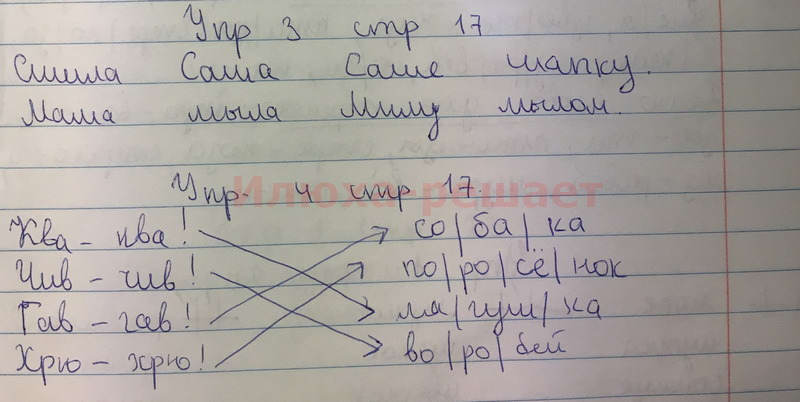 Упр 3 стр 17
Сшила Саша Саше шапку.
Мама мыла Милу мылом.
Упр. 4 стр 17.
Илюха-решает
Ква - ква! со|ба|ка
Чив - чив! по|ро|сё|нок
Гав - гав! ля|гуш|ка
Хрю - хрю! во|ро|бей